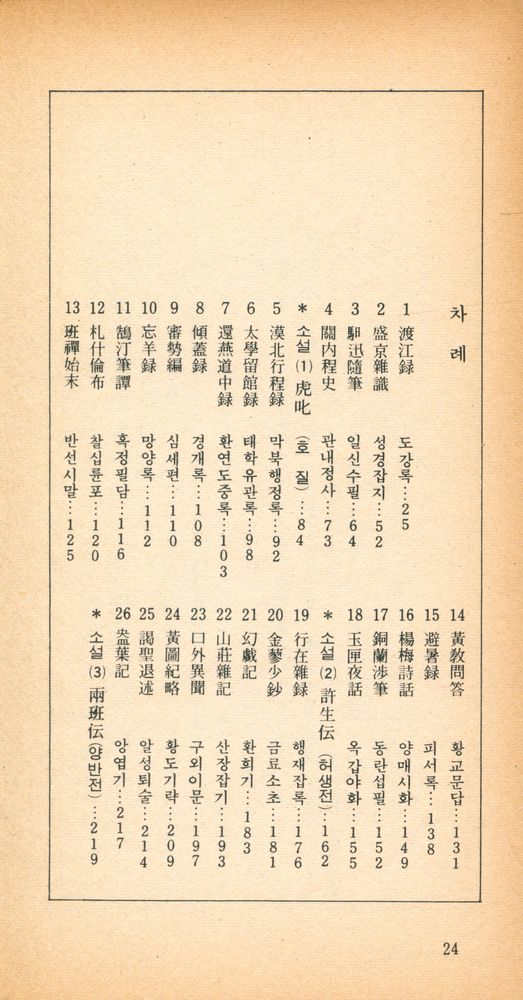 차 례
1 渡江録 도강록…25
2 盛京雜識 성경잡지…52
3 馹迅隨筆 일신수필…64
4 關内程史 관내정사…73
* 소설 (1) 虎叱 (호 질)…84
5 漠北行程録 막북행정록…92
6 太學留館録 태학유관록…98
7 還燕道中録 환연도중록…103
8 傾蓋録 경개록…108
9 審勢編 심세편…110
10 忘羊録 망양록…112
11 鵠汀筆譚 혹정필담…116
12 札什倫布 찰십륜포…120
13 班禪始末 반선시말…125
14 黃敎問答 황교문답…131
15 避暑録 피서록…138
16 楊梅詩話 양매시화…149
17 銅蘭涉筆 동란섭필…152
18 玉匣夜話 옥갑야화…155
* 소설 (2) 許生伝 (허생전)…162
19 行在雜録 행재잡록…176
20 金蓼少鈔 금료소초…181
21 幻戱記 환희기…183
22 山莊雜記 산장잡기…193
23 口外異聞 구외이문…197
24 黃圖紀略 황도기략…209
25 謁聖退述 알성퇴술…214
26 盎葉記 앙엽기…217
* 소설 (3) 兩班伝 (양반전)…219
24